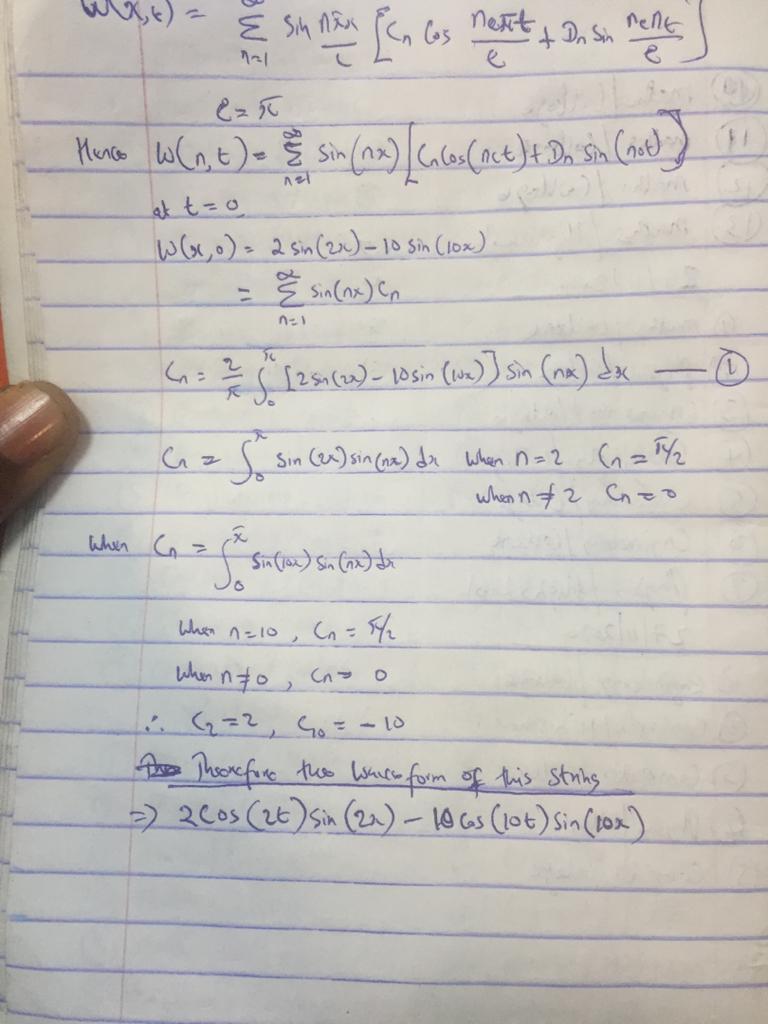 W(x,t) = ∞ Σ n=1 Sin nπx/l [Cn Cos ncπt/l + Dn Sin ncπt/l]
l = π
Hence W(n,t) = ∞ Σ n=1 Sin(nx) [Cn Cos(nct) + Dn Sin(nct)]
at t = 0
W(x,0) = 2 sin(2x) – 10 sin(10x)
= ∞ Σ n=1 sin(nx) Cn
Cn = 2/π ∫₀^π [2 sin(2x) – 10 sin(10x)] sin(nx) dx — ①
Cn = ∫₀^π sin(2x) sin(nx) dx when n = 2 Cn = π/2
when n ≠ 2 Cn = 0
When Cn = ∫₀^π Sin(10x) Sin(nx) dx
When n = 10, Cn = π/2
When n ≠ 0, Cn = 0
∴ C₂ = 2, C₁₀ = – 10
Therefore the waveform of this string
⇒ 2 Cos(2t) Sin(2x) – 10 Cos(10t) Sin(10x)